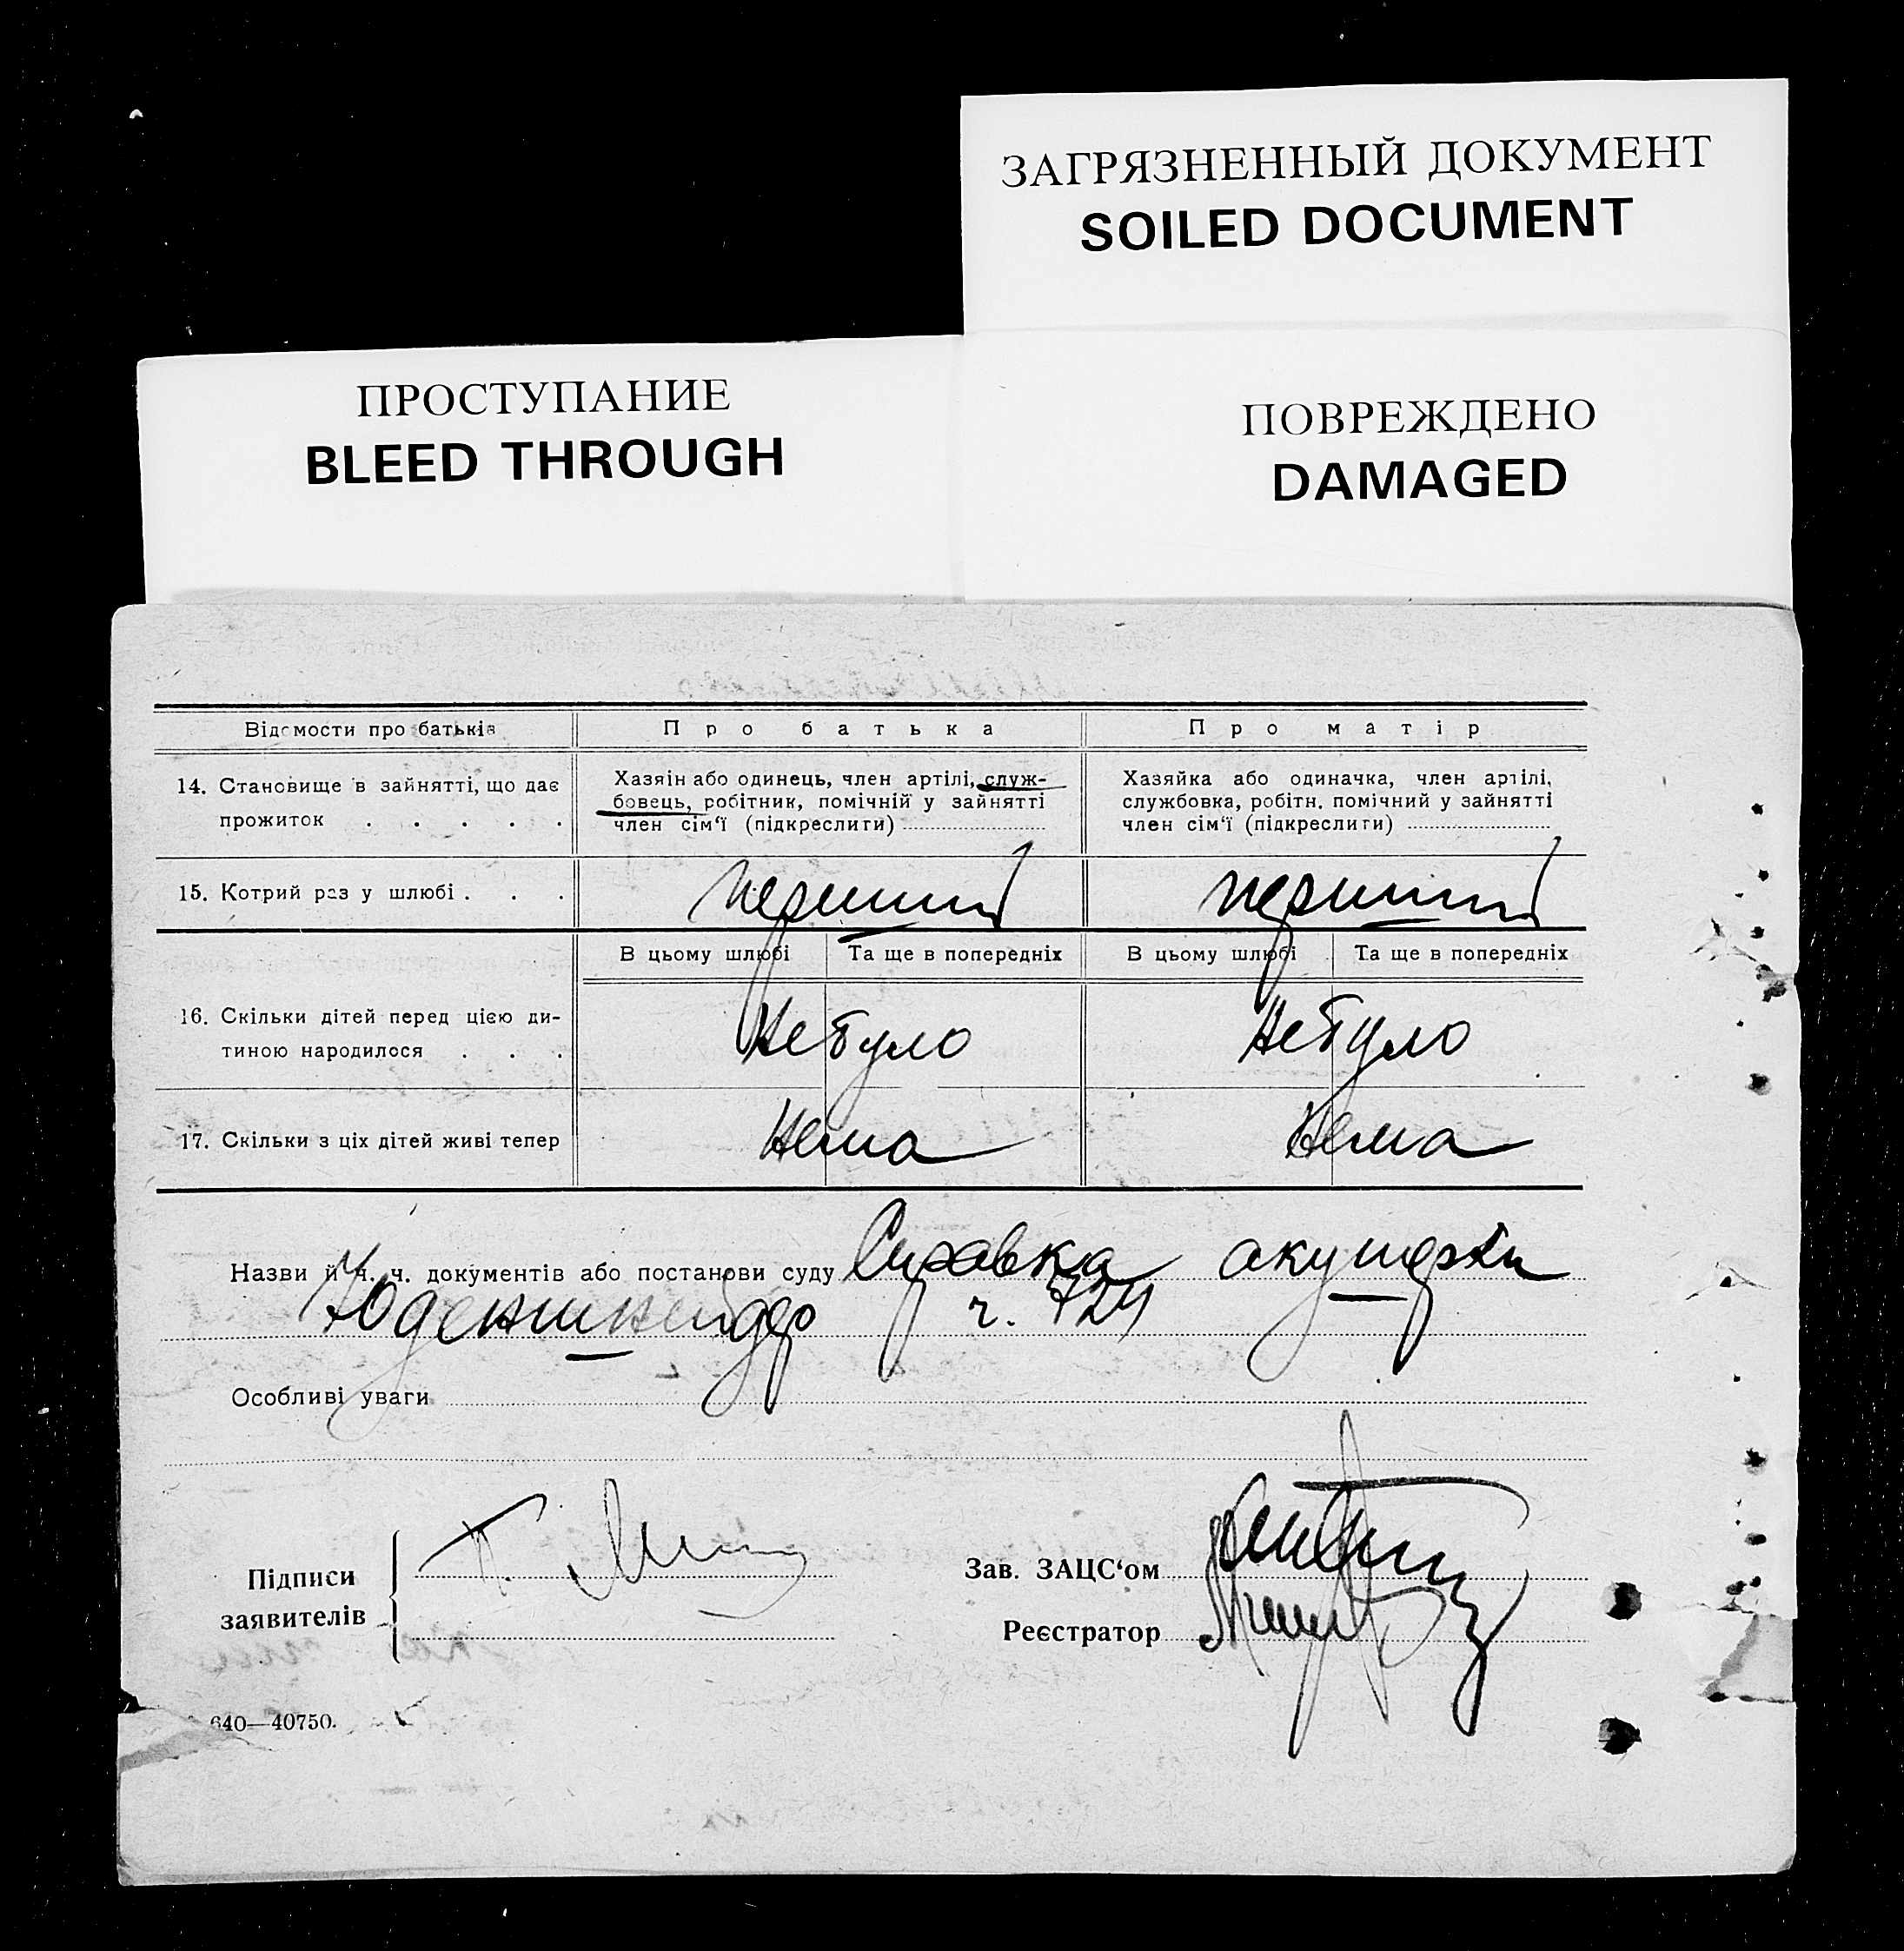 ЗАГРЯЗНЕННЫЙ ДОКУМЕНТ
SOILED DOCUMENT
ПРОСТУПАНИЕ
BLEED THROUGH
ПОВРЕЖДЕНО
DAMAGED
Відомости про батьків
Про батька
Про матір
14. Становище в зайнятті, що дає
прожиток . . . . .
Хазяін або одинець, член артілі, служ-
бовець, робітник, помічній у зайнятті
член сім'ї (підкреслити)
Хазяйка або одиначка, член артілі,
службовка, робітн. помічний у зайнятті
член сім'ї (підкреслити)
15. Котрий раз у шлюбі . . .
перший
перший
В цьому шлюбі
Та ще в попередніх
В цьому шлюбі
Та ще в попередніх
16. Скільки дітей перед цією ди-
тиною народилося . . .
Небуло
Небуло
17. Скільки з ціх дітей живі тепер
Нема
Нема
Назви й ч. ч. документів або постанови суду Справка акушерки
ч. 724
Особливі уваги
Підписи
заявителів
Зав. ЗАЦС'ом
Реєстратор
640—40750.